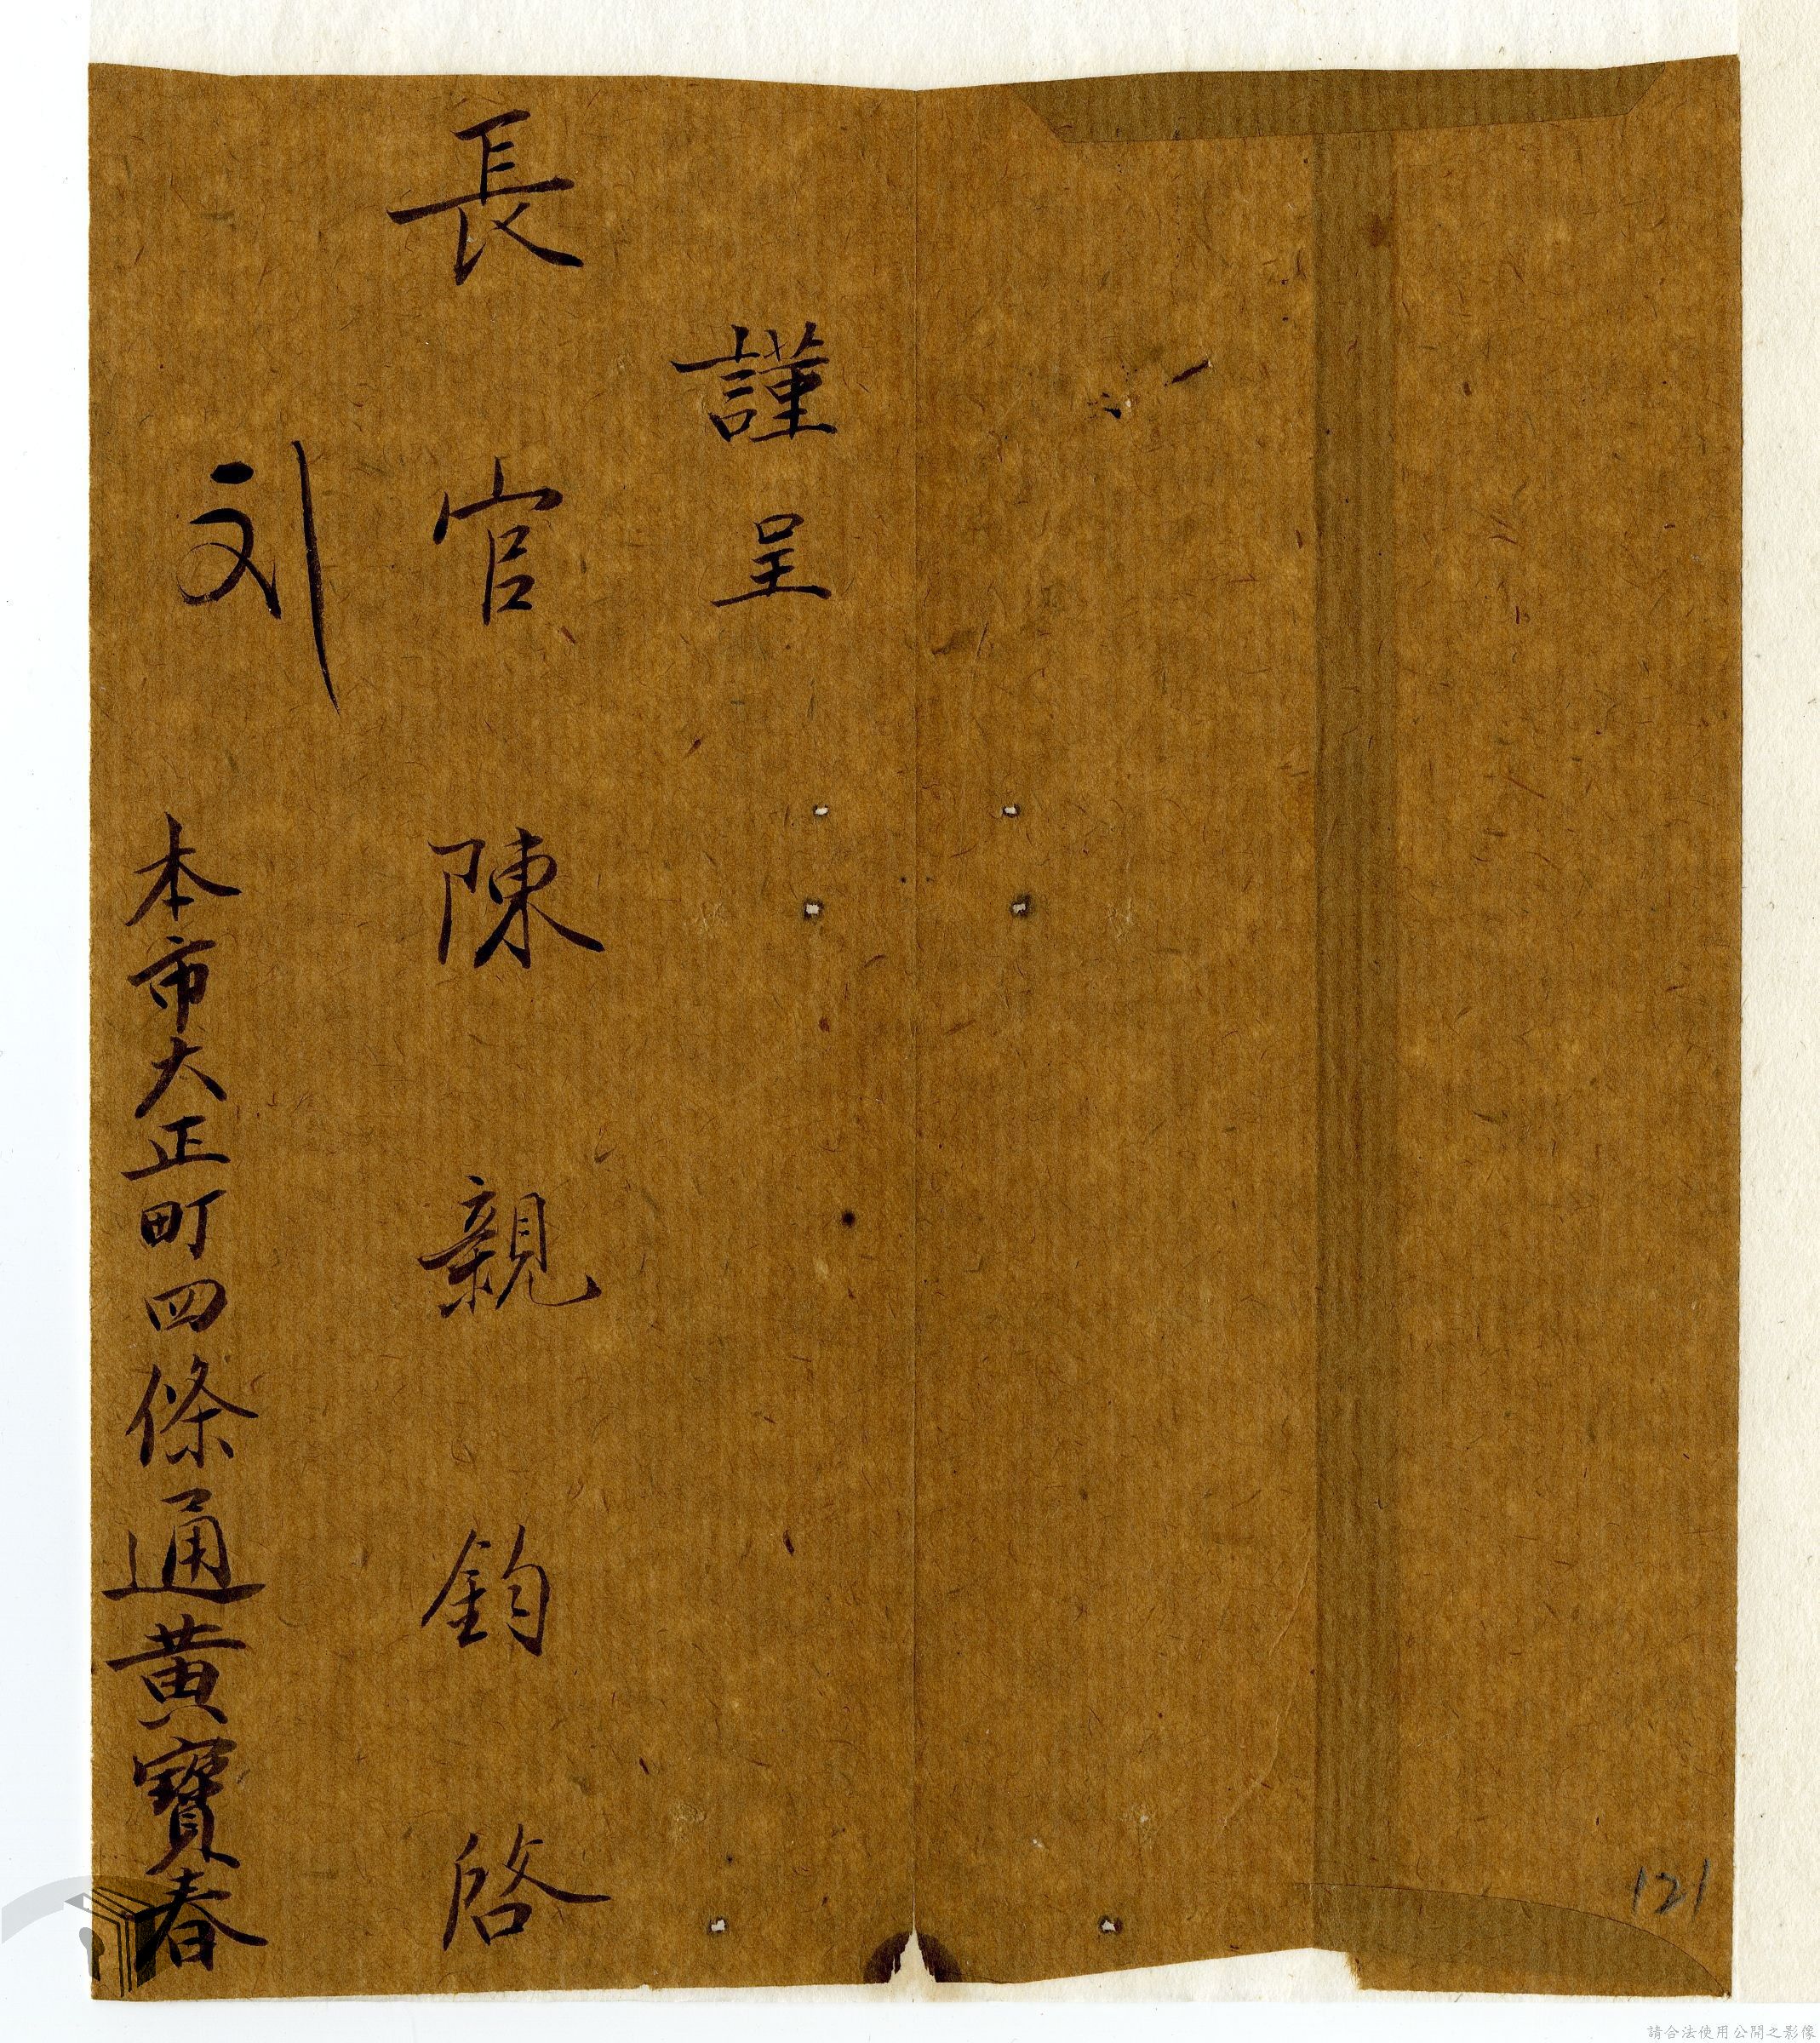 謹呈
長官陳親鈞啓
刘
本市大正町四條通黄寶春
121
請合法使用公開之影像